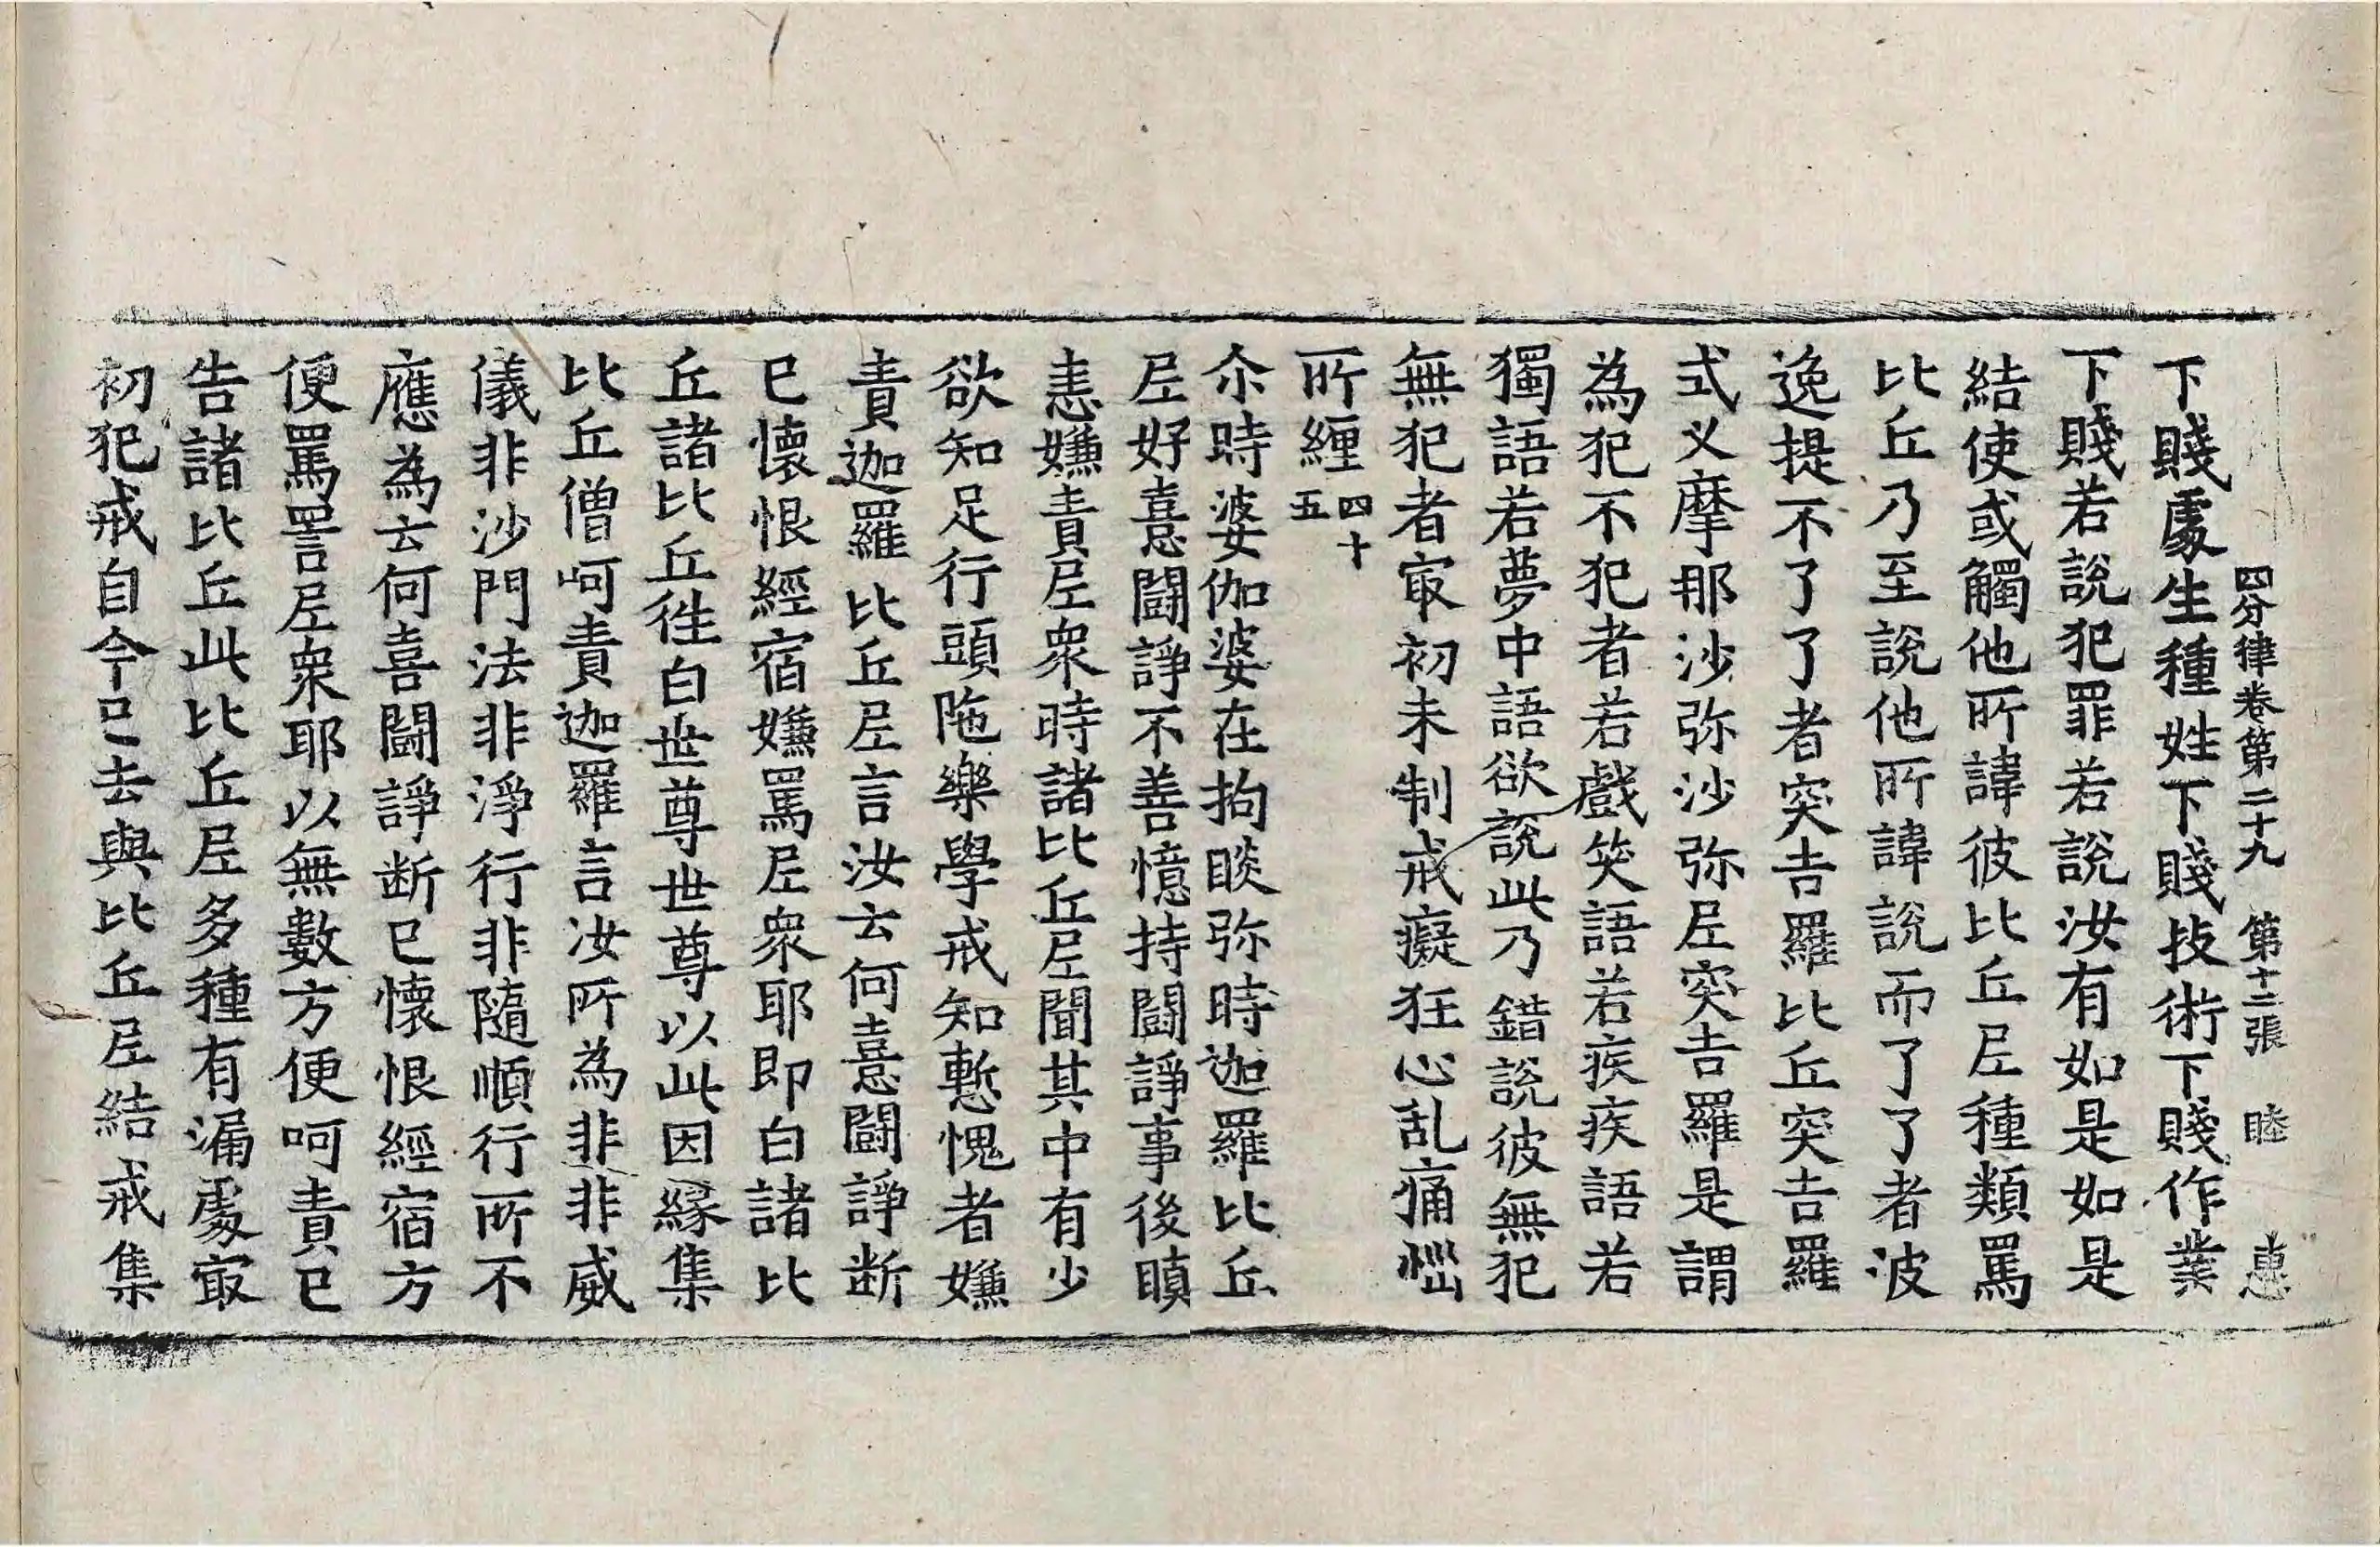 四分律卷第二十九 第十二張 睦 惠
下賤處生種姓下賤技術下賤作業
下賤若說犯罪若說汝有如是如是
結使或觸他所諱彼比丘尼種類罵
比丘乃至說他所諱說而了了者波
逸提不了了者突吉羅比丘突吉羅
式叉摩那沙弥沙弥尼突吉羅是謂
為犯不犯者若戲笑語若疾疾語若
獨語若夢中語欲說此乃錯說彼無犯
無犯者㝡初未制戒癡狂心乱痛惱
所纏四十五
尒時婆伽婆在拘睒弥時迦羅比丘
尼好憙鬪諍不善憶持鬪諍事後瞋
恚嫌責尼衆時諸比丘尼聞其中有少
欲知足行頭陁樂學戒知慙愧者嫌
責迦羅比丘尼言汝云何憙鬪諍断
已懷恨經宿嫌罵尼衆耶即白諸比
丘諸比丘徃白世尊世尊以此因縁集
比丘僧呵責迦羅言汝所為非非威
儀非沙門法非淨行非隨順行所不
應為云何喜鬪諍断已懷恨經宿方
便罵詈尼衆耶以無數方便呵責已
告諸比丘此比丘尼多種有漏處㝡
初犯戒自今已去與比丘尼結戒集